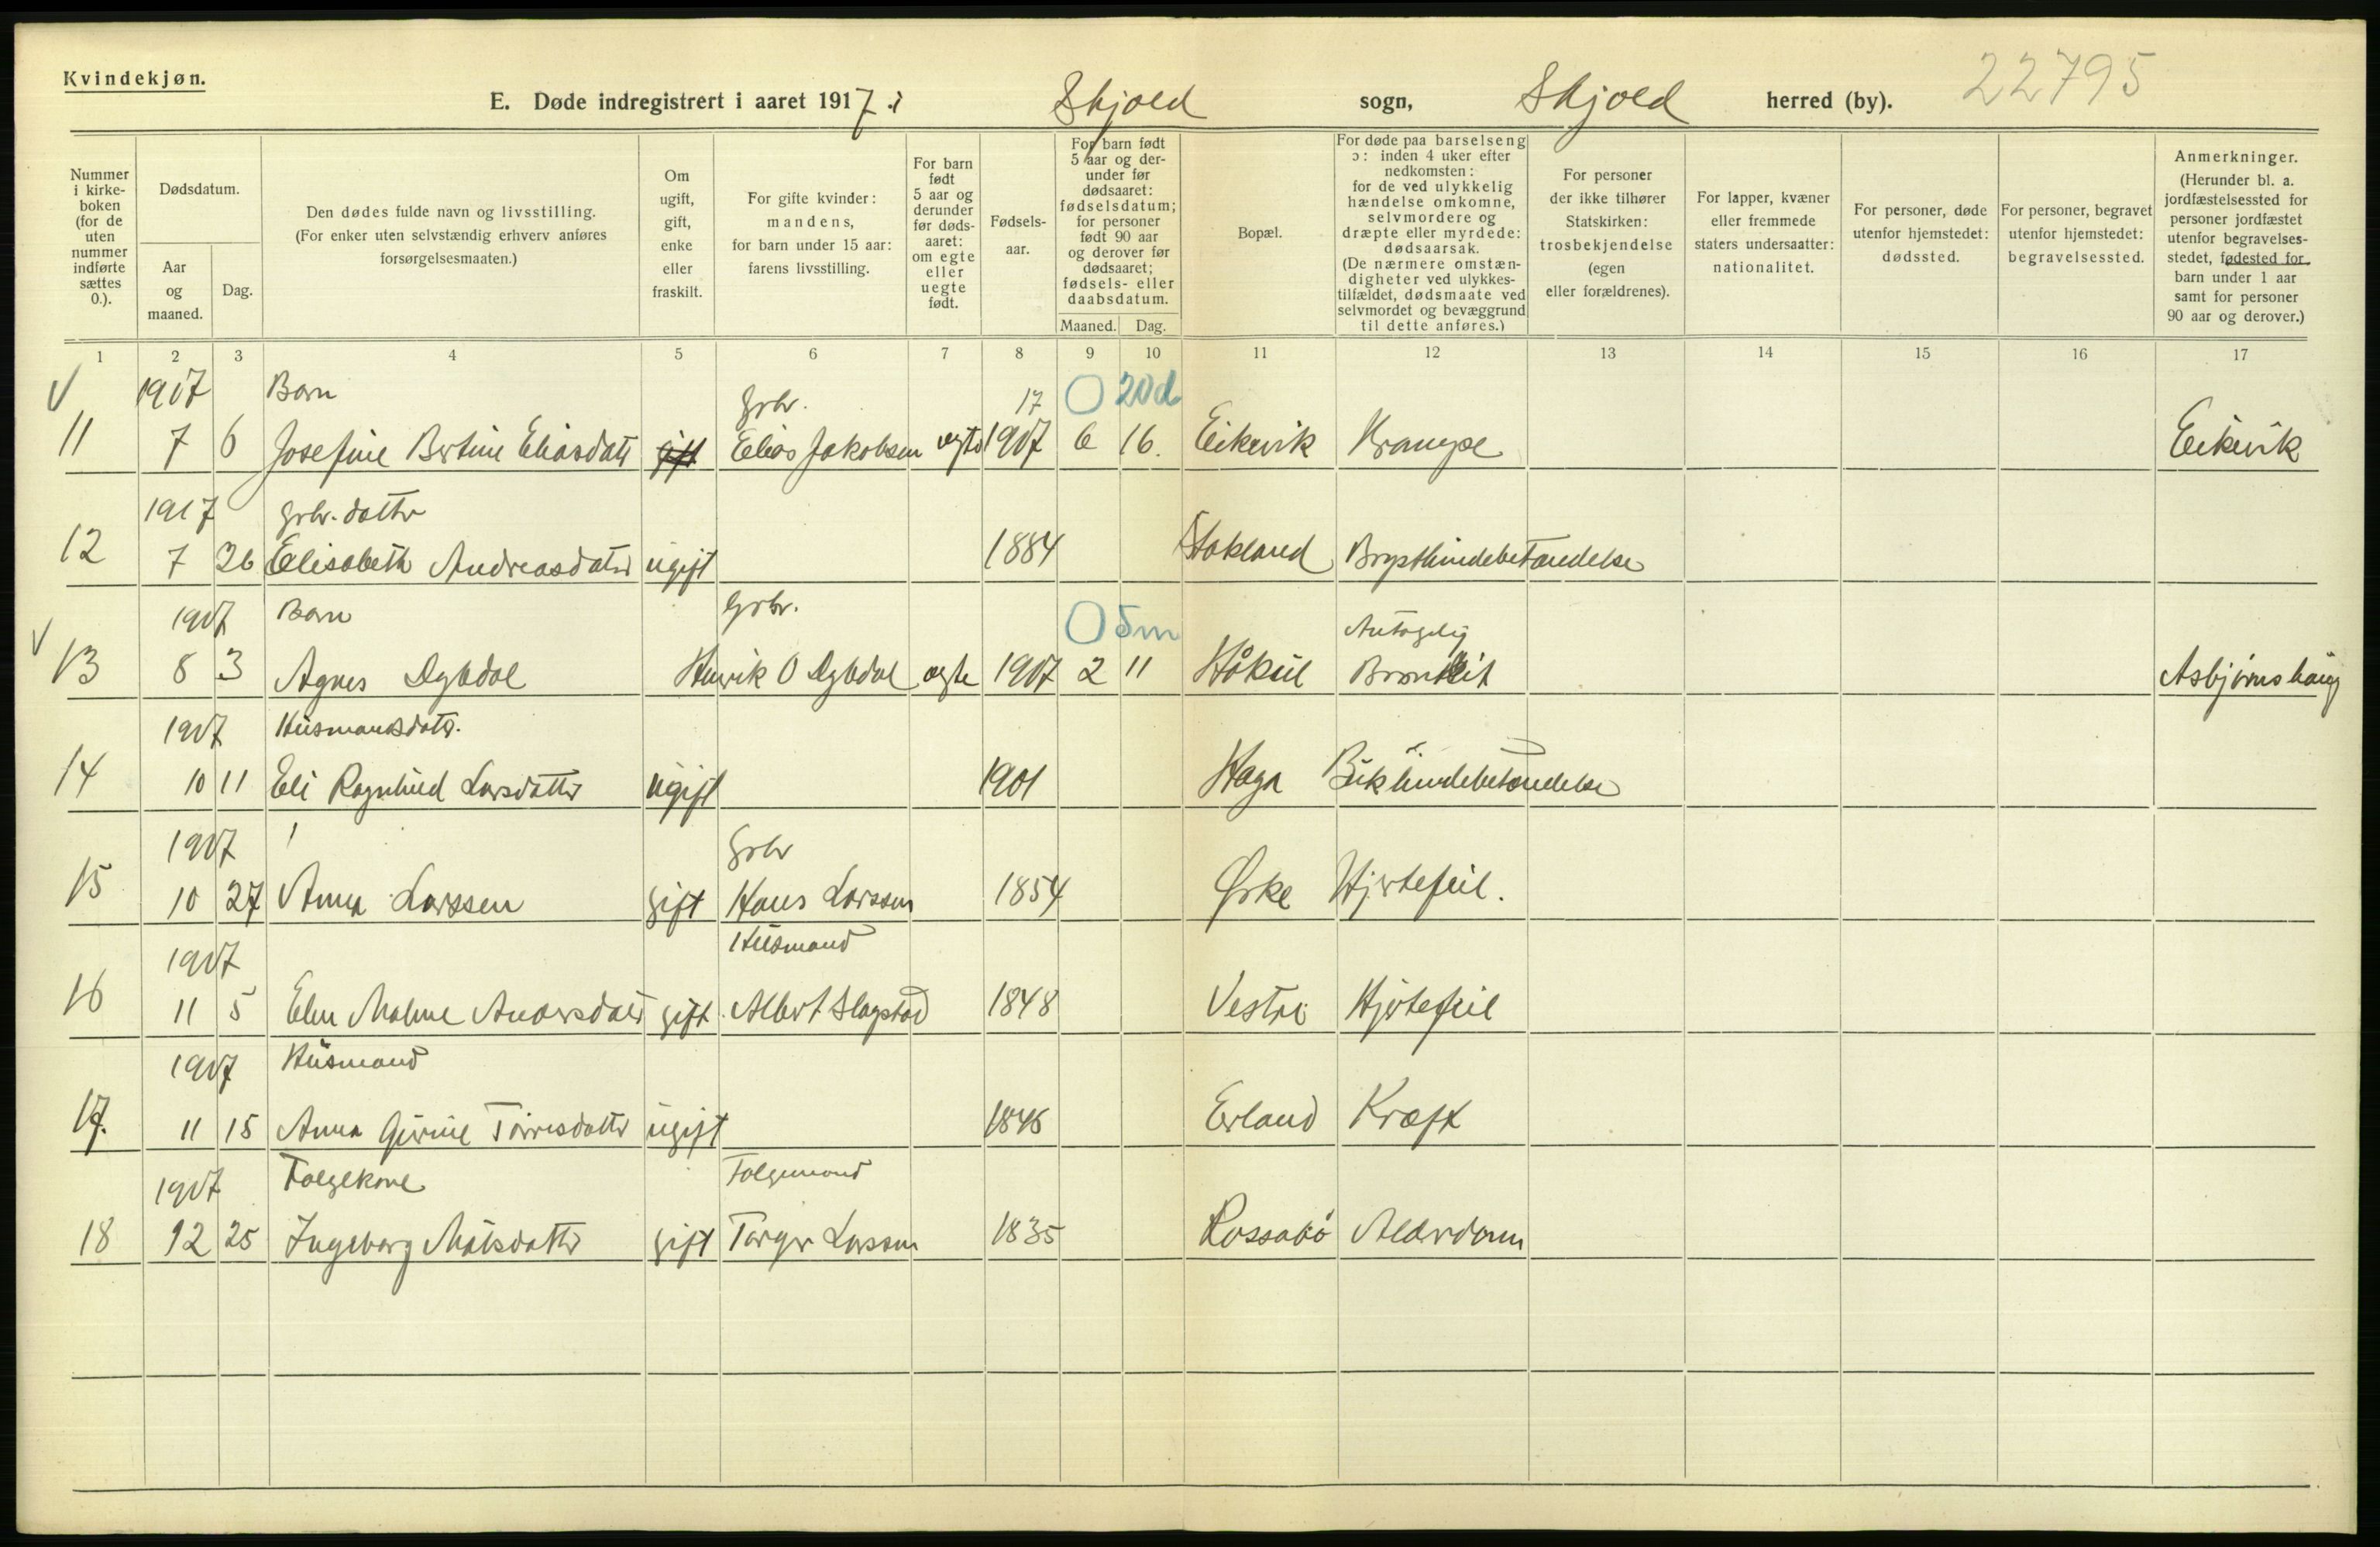 Kvindekjøn.
E. Døde indregistrert i aaret 1917 i Skjold sogn, Skjold herred (by). 22795
Nummer i kirkeboken (for de uten nummer indførte sættes 0.).
Dødsdatum.
Aar og maaned.
Dag.
Den dødes fulde navn og livsstilling. (For enker uten selvstændig erhverv anføres forsørgelsesmaaten.)
Om ugift, gift, enke eller fraskilt.
For gifte kvinder: mandens, for barn under 15 aar: farens livsstilling.
For barn født 5 aar og derunder før dødsaaret: om egte eller uegte født.
Fødselsaar.
For barn født 5 aar og derunder før dødsaaret: fødselsdatum; for personer født 90 aar og derover før dødsaaret; fødsels- eller daabsdatum.
Maaned. Dag.
Bopæl.
For døde paa barselseng ɔ: inden 4 uker efter nedkomsten: for de ved ulykkelig hændelse omkomne, selvmordere og dræpte eller myrdede: dødsaarsak. (De nærmere omstændigheter ved ulykkestilfældet, dødsmaate ved selvmordet og bevæggrund til dette anføres.)
For personer der ikke tilhører Statskirken: trosbekjendelse (egen eller forældrenes).
For lapper, kvæner eller fremmede staters undersaatter: nationalitet.
For personer, døde utenfor hjemstedet: dødssted.
For personer, begravet utenfor hjemstedet: begravelsessted.
Anmerkninger. (Herunder bl. a. jordfæstelsessted for personer jordfæstet utenfor begravelsesstedet, fødested for barn under 1 aar samt for personer 90 aar og derover.)
1 2 3 4 5 6 7 8 9 10 11 12 13 14 15 16 17
V 1917 Barn Grbr. 17 0 20d
11 7 6 Josefine Bertine Eliasdatr gift Elias Jakobsen egte 1917 6 16. Eikevik Krampe Eikevik
1917 Grbr. datter
12 7 26 Elisabeth Andreasdatr ugift 1884 Stakland Brysthindebetændelse
V 1917 Barn Grbr. 0 5m Antagelig
13 8 3 Agnes Dybdal Henrik O Dybdal egte 1917 2 11 Bronkit Asbjørnshaug
1917 Husmansdatr.
14 10 11 Eli Ragnhild Larsdatter ugift 1901 Haga Bukhindebetændelse
1917 Grbr
15 10 27 Anna Larssen gift Hans Larssen 1854 Ørke Hjertefeil.
1917 Husmand
16 11 5 Malene gift Albert Slagstad 1848 Vestre Hjertefeil
1917 Husmand
17. 11 15 Anna Gurine Tørresdatter ugift 1846 Erland Kræft
1917 Folgekone Folgemand
18 12 25 Ingeborg Matsdatter gift Torger Larssen 1835 Rossabø Alderdom